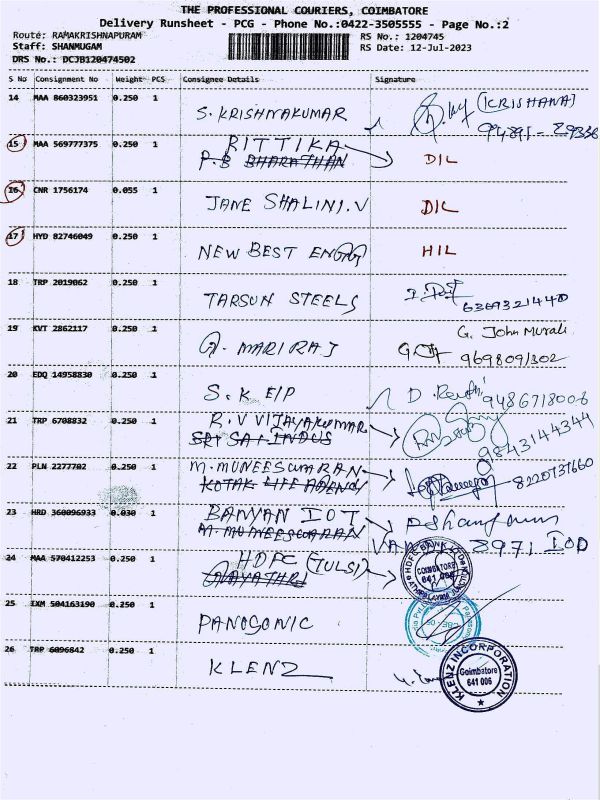 THE PROFESSIONAL COURIERS, COIMBATORE
Delivery Runsheet - PCG - Phone No.:0422-3505555 - Page No.:2
Route: RAMAKRISHNAPURAM
RS No.: 1204745
Staff: SHANMUGAM
RS Date: 12-Jul-2023
DRS No.: DCJB120474502
S No Consignment No Weight PCS Consignee Details Signature
14 MAA 860323951 0.250 1 S. KRISHNAKUMAR (KRISHANA)
94891-89336
15 MAA 569777375 0.250 1 RITTIKA DIL
P B BHARATHAN
16 CNR 1756174 0.055 1 JANE SHALINI.V DIL
17 HYD 82746049 0.250 1 NEW BEST ENGG HIL
18 TRP 2019062 0.250 1 TARSUN STEELS 6369321440
19 KVT 2862117 0.250 1 G. MARI RAJ G. John Murali
9698091302
20 EDQ 14958830 0.250 1 S.K E/P 9486718006
21 TRP 6708832 0.250 1 R.V VIJAYAKUMAR 9843144344
SRI SAI INDUS
22 PLN 2277702 0.250 1 M. MUNEESWARAN 8220737660
KOTAK LIFE AGENCY
23 HRD 360096933 0.030 1 BANYAN IOT
M. MUNEESWARAN 8971 IOD
24 MAA 570412253 0.250 1 HDFC (TULSI) HDFC BANK COIMBATORE 641 006
GAYATHRI
25 IXM 504163190 0.250 1 PANASONIC
26 TRP 6096842 0.250 1 KLENZ KLENZ INCORPORATION Coimbatore 641 006